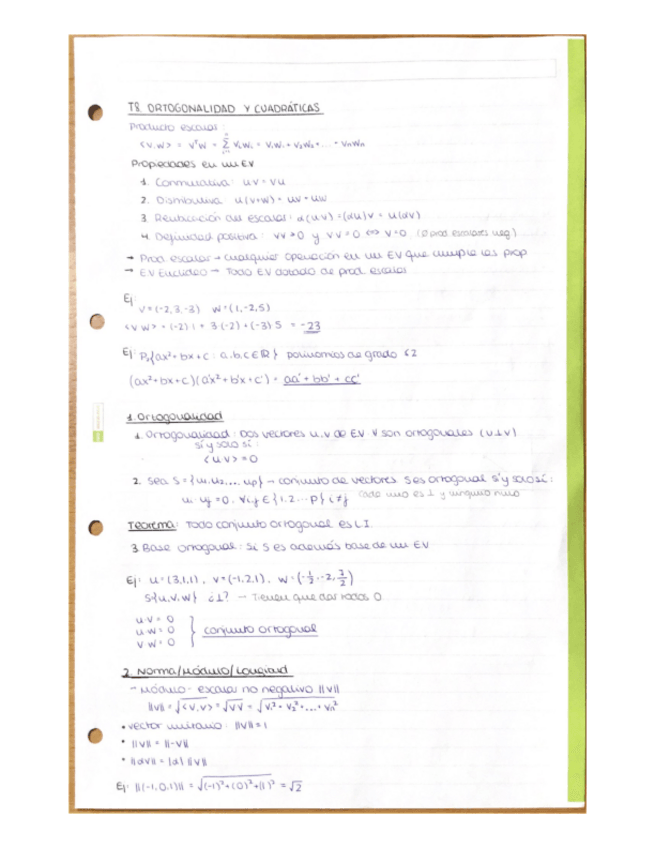 T8. ORTOGONALIDAD Y CUADRÁTICAS
Producto escalar:
<v,w> = vᵀw = Σ vᵢwᵢ = v₁w₁ + v₂w₂ + ... + vₙwₙ
Propiedades en un EV
1. Conmutativa: uv = vu
2. Distributiva: u(v+w) = uv + uw
3. Reubicación del escalar: α(uv) = (αu)v = u(αv)
4. Definidad positiva: vv ≥ 0 y vv = 0 ⇔ v = 0 (∅ prod. escalares neg)
→ Prod. escalar → cualquier operación en un EV que cumple las prop
→ EV Euclídeo → Todo EV dotado de prod. escalar
Ej: v = (-2,3,-3) w = (1,-2,5)
<v w> = (-2)1 + 3(-2) + (-3)5 = -23
Ej: P₂{ax² + bx + c : a,b,c ∈ ℝ} polinomios de grado ≤2
(ax² + bx + c)(a'x² + b'x + c') = aa' + bb' + cc'
1. Ortogonalidad
1. Ortogonalidad: Dos vectores u,v de EV V son ortogonales (u⊥v)
sí y solo si:
<u v> = 0
2. Sea S = {u₁,u₂,..., up} → conjunto de vectores S es ortogonal sí y solo si:
uᵢ·uⱼ = 0, ∀i,j ∈ {1,2...p} i ≠ j cada uno es ⊥ y ninguno nulo
Teorema: Todo conjunto ortogonal es L.I.
3. Base ortogonal: Si S es además base de un EV
Ej: u = (3,1,1), v = (-1,2,1), w = (-1/2,-2,7/2)
S{u,v,w} ¿⊥? → Tienen que dar todos 0
u·v = 0
u·w = 0 } conjunto ortogonal
v·w = 0
2. Norma/Módulo/Longitud
- Módulo - escalar no negativo ||v||
||v|| = √<v,v> = √vv = √v₁² + v₂² + ... + vₙ²
• vector unitario: ||v|| = 1
• ||v|| = ||-v||
• ||αv|| = |α| ||v||
Ej: ||(-1,0,1)|| = √(-1)² + (0)² + (1)² = √2